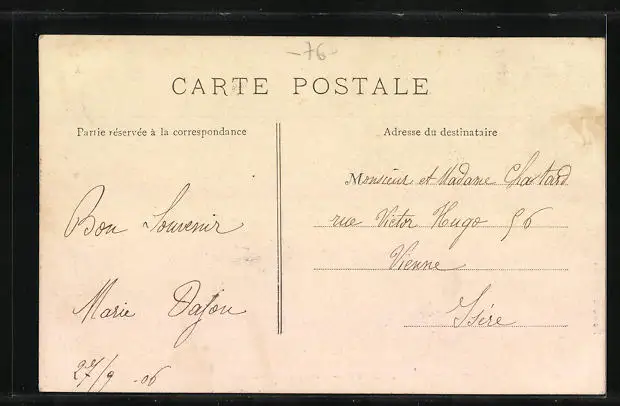 -76-
CARTE POSTALE
Partie réservée à la correspondance
Adresse du destinataire
Bon Souvenir
Marie Dajon
27/9 -06
Monsieur et Madame Chatard
rue Victor Hugo 56
Vienne
Isère